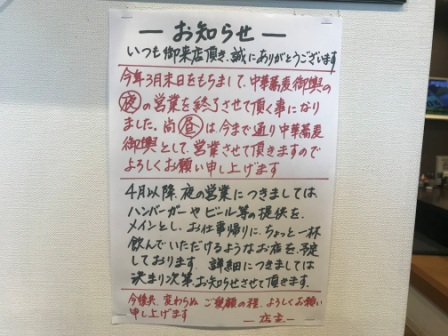 ー お知らせ ー
いつも御来店頂き、誠にありがとうございます
今年3月末日をもちまして、中華蕎麦御輿の
夜の営業を終了させて頂く事になり
ました。尚昼は今まで通り中華蕎麦
御輿として、営業させて頂きますので
よろしくお願い申し上げます
4月以降、夜の営業につきましては
ハンバーガーやビール等の提供を、
メインとし、お仕事帰りに、ちょっと一杯
飲んでいただけるようなお店を、予定
しております。詳細につきましては
決まり次第お知らせさせて頂きます。
今後共、変わらぬご愛顧の程、よろしくお願い
申し上げます ー店主ー